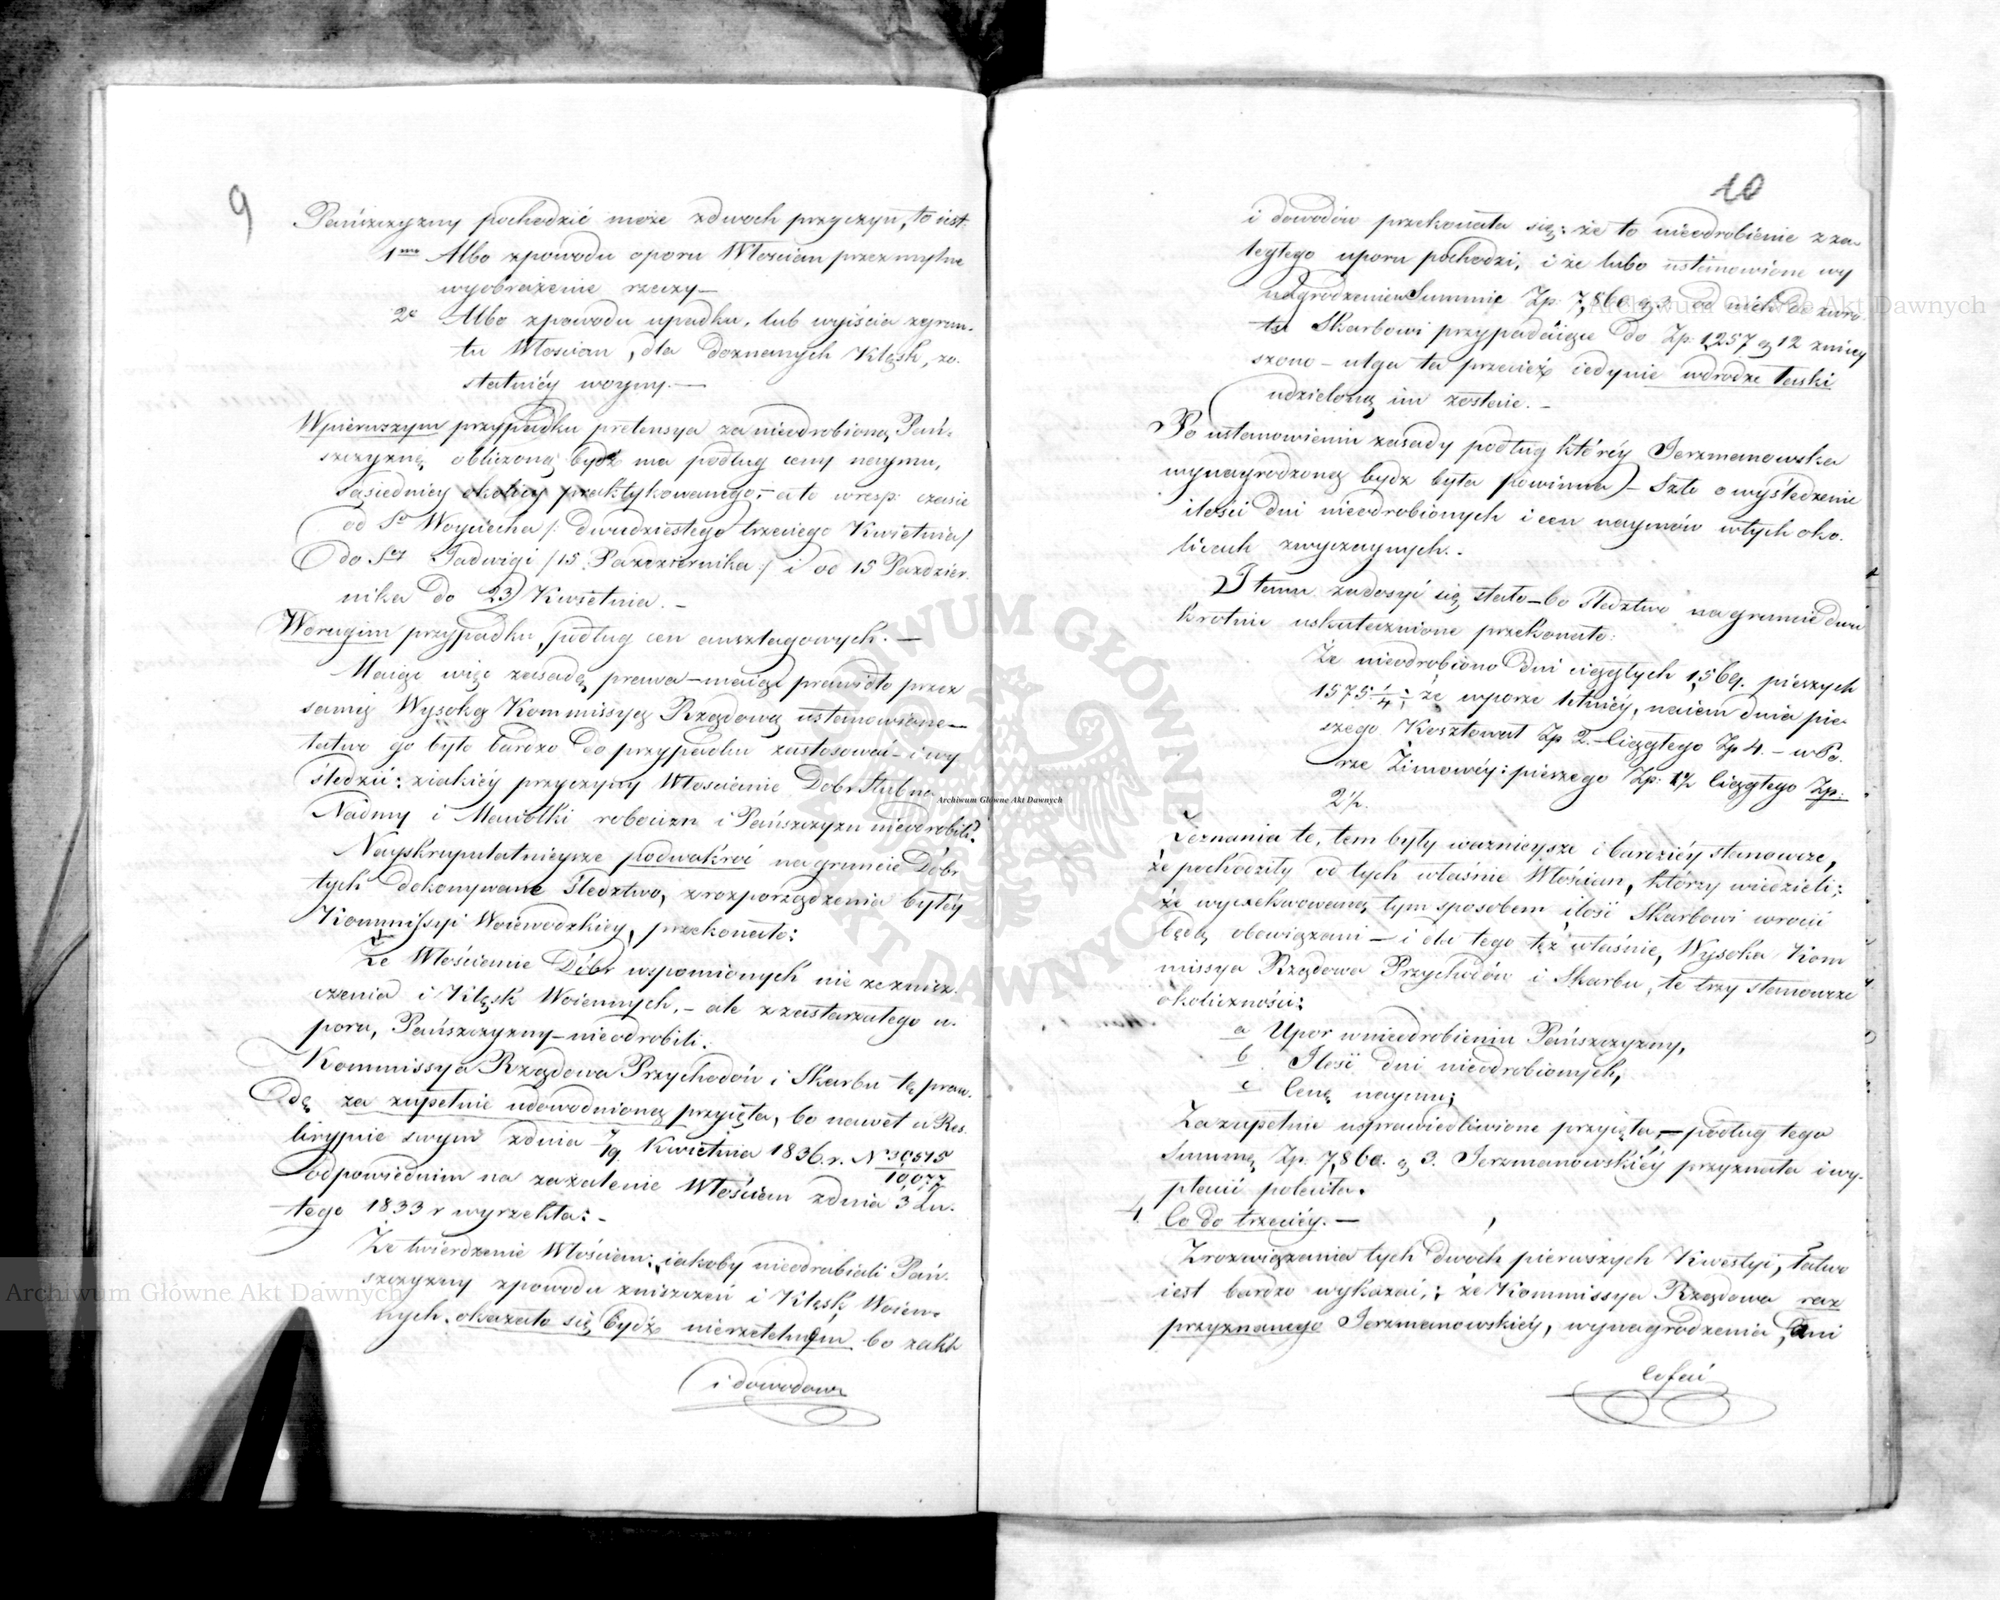 9
Pańszczyzny pochodzić może zdwoch przyczyn, to iest:
1mo Albo zpowodu oporu Włoscian przez mylne
wyobrażenie rzeczy—
2e Albo zpowodu upadku, lub wyiścia zgrun-
tu Włoscian, dla doznanych Klęsk, zo-
statniéy woyny.—
Wpierwszym przypadku pretensya za nieodrobioną Pań-
szczyznę obliczoną bydź ma podług ceny naymu,
sąsiedniey okolicy praktykowanego,— a to wresp: czasie
od So Woyciecha /: dwudziestego trzeciego Kwietnia/
do Sey Jadwigi /15 Pazdziernika:/ i od 15 Pazdzier-
nika do 23 Kwietnia.—
Wdrugim przypadku, podług cen anszlagowych.—
Maiąc więc zasadę prawa—maiąc prawidło przez
samą Wysoką Kommissyą Rządową ustanowione—
łatwo go było bardzo do przypadku zastosować—i wy
śledzić: ziakiéy przyczyny Włościanie Dobr Słubna
Nadmy i Mawołki robocizn i Pańszczyzn nieodrobili?
Nayskrupulatnieysze podwakroć na gruncie Dóbr
tych dokonywane Śledztwo, zrozporządzenia byłéy
Kommissyi Woiewodzkiey, przekonało:
Że Włościanie Dóbr wspomionych nie ze znisz-
czenia i Klęsk Woiennych,— ale z zastarzałego u-
poru, Pańszczyzny—nieodrobili.
Kommissya Rządowa Przychodów i Skarbu tę praw-
dę za zupełnie udowodnioną przyięła, bo nawet w Res-
krypcie swym zdnia 7/19 Kwietnia 1836. r. No 30,515/10,077
odpowiednim na zażalenie Włościan zdnia 3 Lu-
tego 1833 r wyrzekła:—
Że twierdzenie Włościan: iakoby nieodrabiali Pań-
szczyzny zpowodu zniszczeń i Klęsk Woien-
nych. okazało się bydź nierzetelnym bo zakt
i dowodow
10
i dowodów przekonała się: że to nieodrobienie z za-
ległego uporu pochodzi, i że lubo ustanowione wy
nagrodzenie w Summie Zp: 7,860 g 3. od nich do zwro-
tu Skarbowi przypadaiące do Zp: 1,257 g 12 zniey
szono— ulga ta przecież iedynie wdrodze łaski
udzieloną im zostaie.—
Po ustanowieniu zasady podług któréy Jerzmanowska
wynagrodzoną bydz była powinna— Szło o wyśledzenie
ilości dni nieodrobionych i cen naymów wtych oko-
licach zwyczaynych.—
I temu zadosyć się stało—bo śledztwo na gruncie dwu
krotnie uskutecznione przekonało:
Że nieodrobiono dni ciągłych 1,569. pieszych
1575 1/4; że wporze letniéy, naiem dnia pie-
szego Kosztował Zp 2.— ciągłego Zp 4.— w Po-
rze Zimowéy: pieszego Zp: 1½ ciągłego Zp:
2½.
Zeznania te, tem były waznieysze i bardziéy stanowcze,
że pochodziły od tych właśnie Włościan, którzy wiedzieli:
że wyexekwowaną tym sposobem ilość Skarbowi wrócić
będą obowiązani— i dla tego też właśnie, Wysoka Kom
missya Rządowa Przychodów i Skarbu, te trzy stanowcze
okoliczności:
a Upor wnieodrobieniu Pańszczyzny,
b Ilość dni nieodrobionych,
c Cenę naymu;
Za zupełnie usprawiedliwione przyięła,— podług tego
Summę Zp. 7,860. g 3. Jerzmanowskiéy przyznała i wy-
płacić poleciła.
4. Co do trzeciéy.—
Zrozwiązania tych dwóch pierwszych Kwestyi, łatwo
iest bardzo wykazać,: że Kommissya Rządowa raz
przyznanego Jerzmanowskiéy, wynagrodzenia, ani
cofać
Archiwum Główne Akt Dawnych
Archiwum Główne Akt Dawnych
Archiwum Główne Akt Dawnych
ARCHIWUM GŁÓWNE AKT DAWNYCH